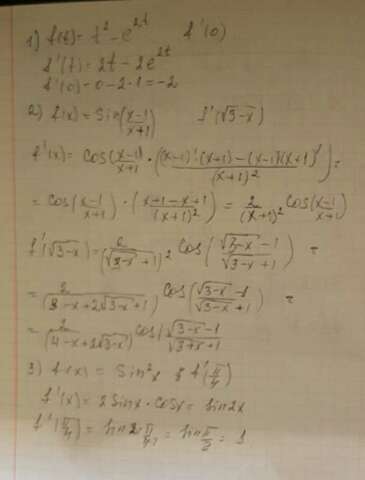 1) f(t) = t² - e^2t f'(0)
f'(t) = 2t - 2e^2t
f'(0) = 0 - 2·1 = -2
2) f(x) = Sin(x-1/x+1) f'(√3-x)
f'(x) = cos(x-1/x+1) · ((x-1)'·(x+1)-(x-1)(x+1)'/(x+1)²) =
= cos(x-1/x+1) · (x+1-x+1/(x+1)²) = 2/(x+1)² cos(x-1/x+1)
f'(√3-x) = 2/(√3-x+1)² cos(√3-x-1/√3-x+1) =
= 2/(3-x+2√3-x+1) cos(√3-x-1/√3-x+1) =
= 2/(4-x+2√3-x) cos(√3-x-1/√3+x+1
3) f(x) = Sin²x f'(π/4)
f'(x) = 2 Sinx · cosx = Sin2x
f'(π/4) = Sin2 π/4 = Sin π/2 = 1